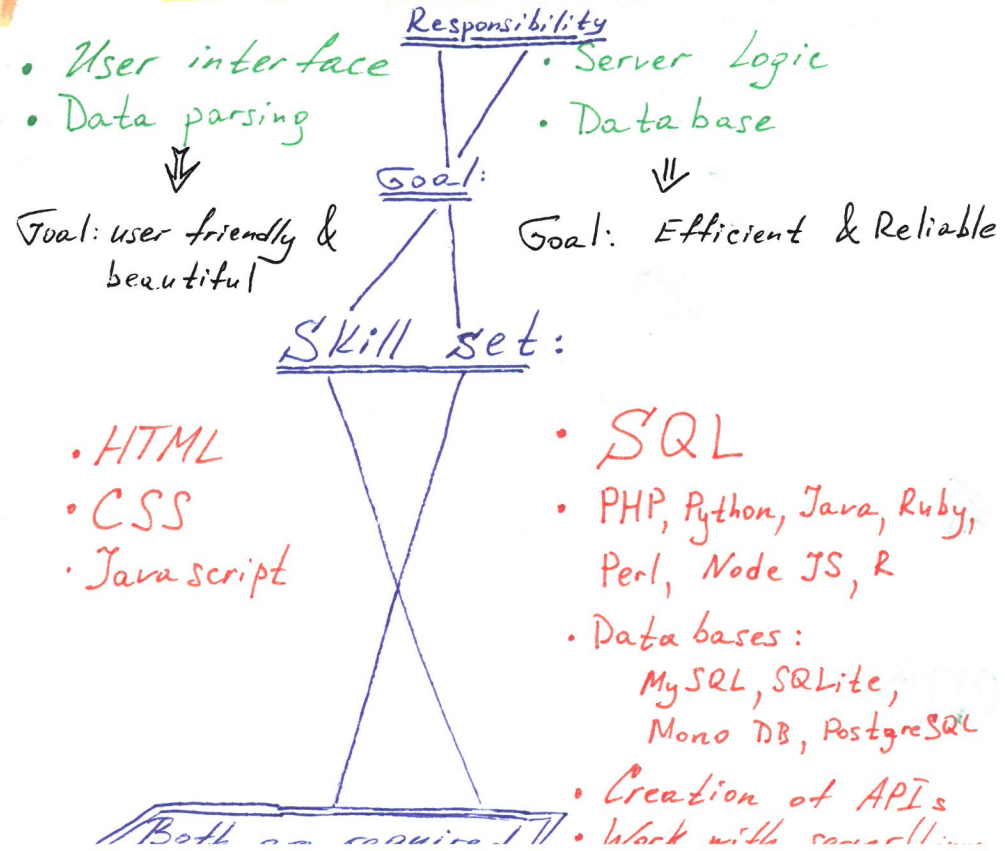 Responsibility
• User interface
• Data parsing
• Server Logic
• Database
Goal:
Goal: user friendly &
beautiful
Goal: Efficient & Reliable
Skill set:
• HTML
• CSS
• Javascript
• SQL
• PHP, Python, Java, Ruby,
Perl, Node JS, R
• Databases:
MySQL, SQLite,
Mono DB, PostgreSQL
• Creation of APIs
Both are required!
• Work with